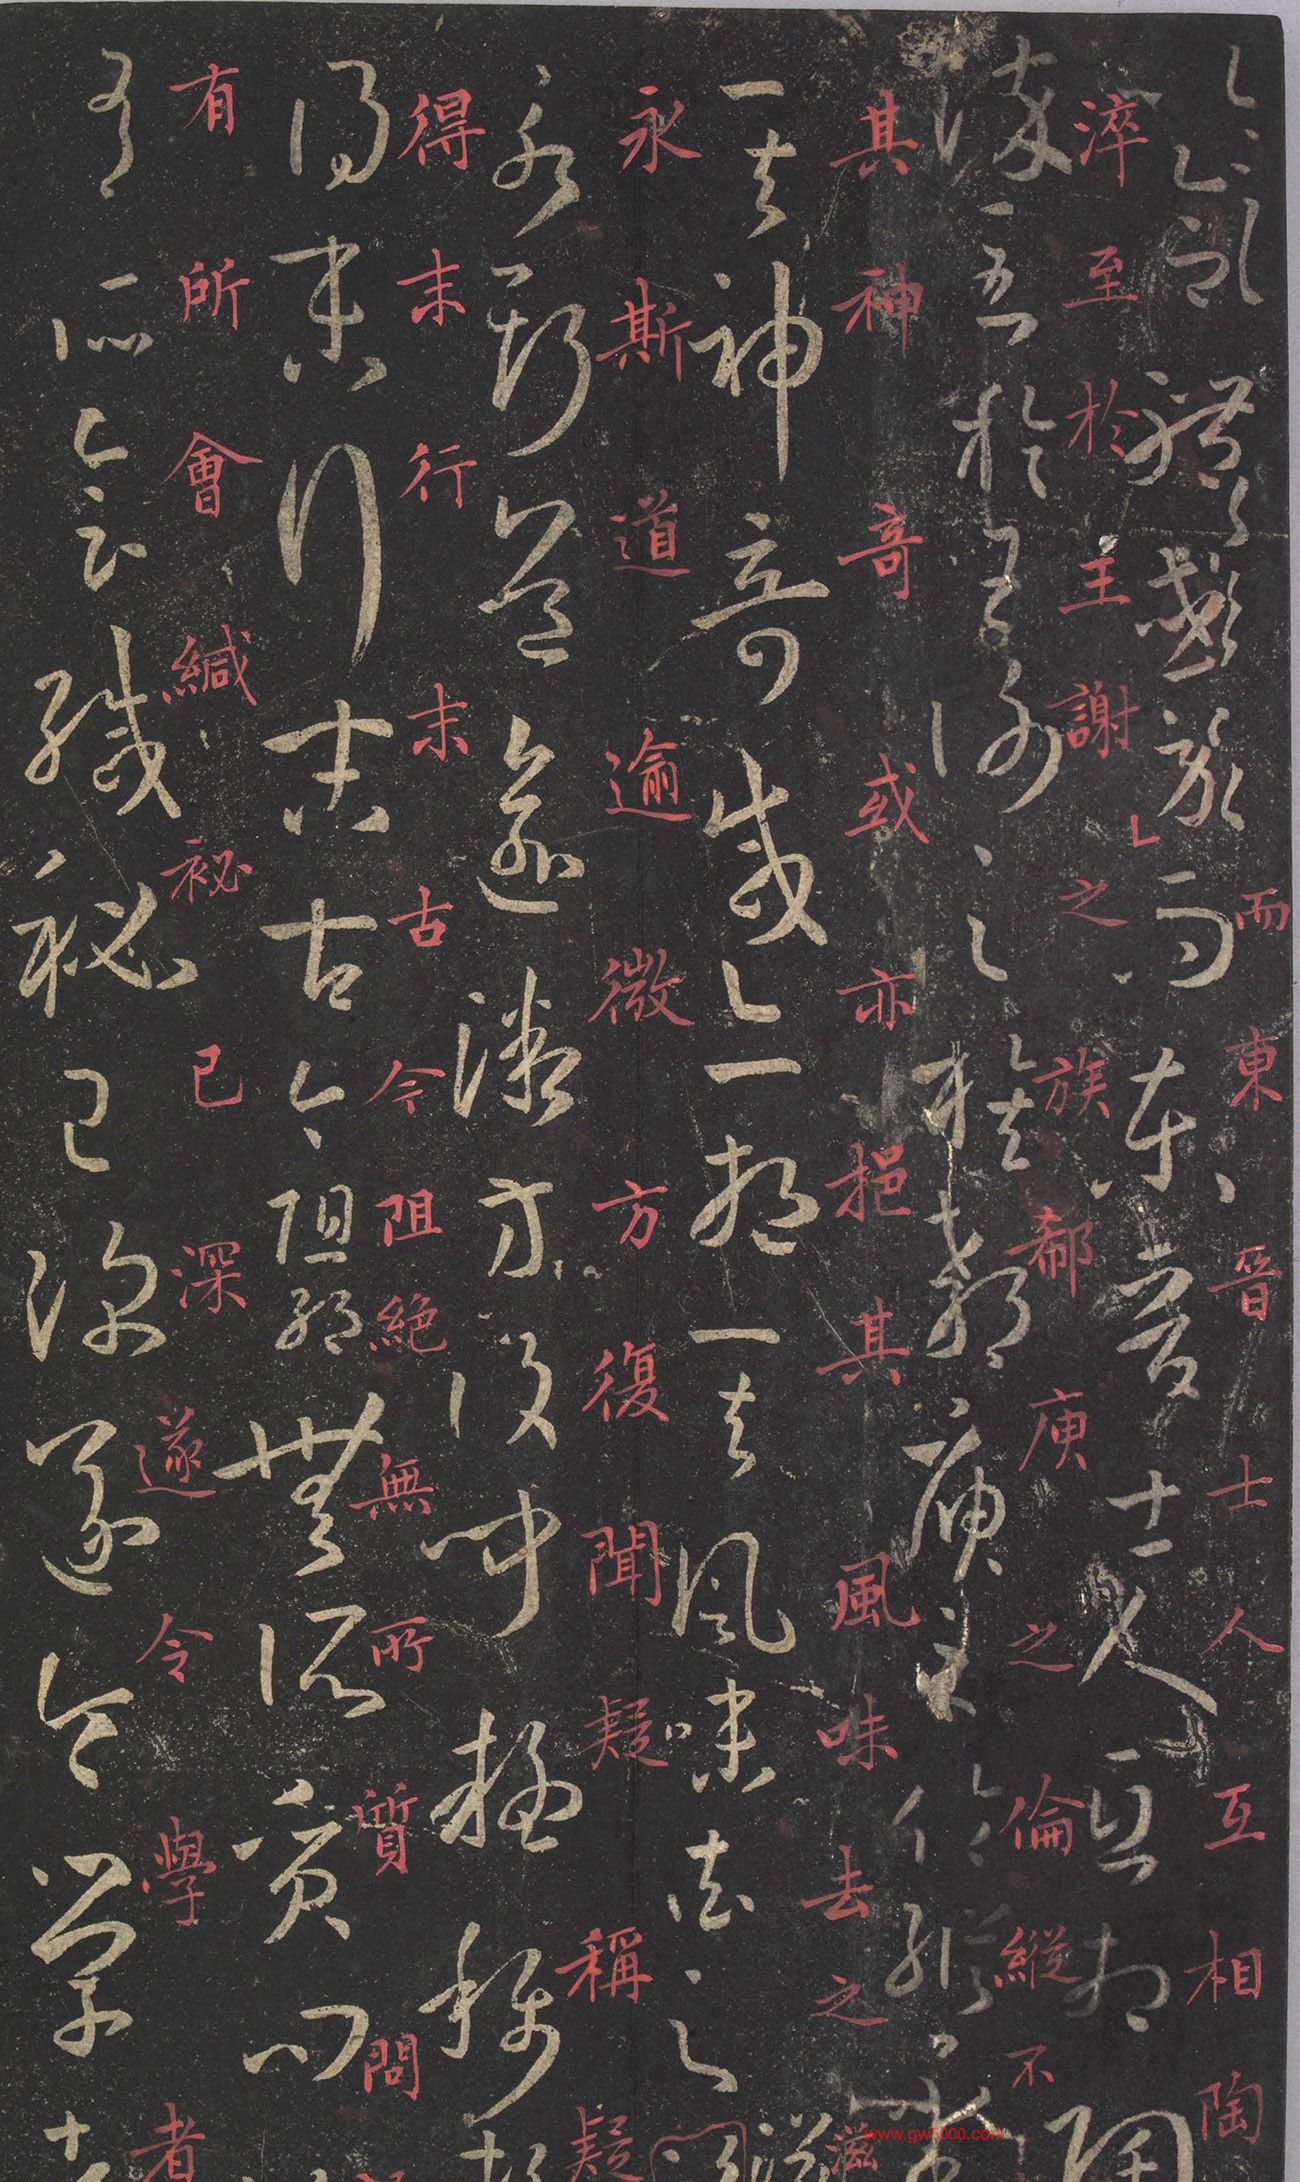 而東晉士人互相陶
淬至於王謝之族郗庾之倫縱不
其神奇或亦挹其風味去之滋
永斯道逾微方復聞疑稱疑
得末行末古今阻絕無所質問
有所會緘祕已深遂令學者
www.gw5000.com